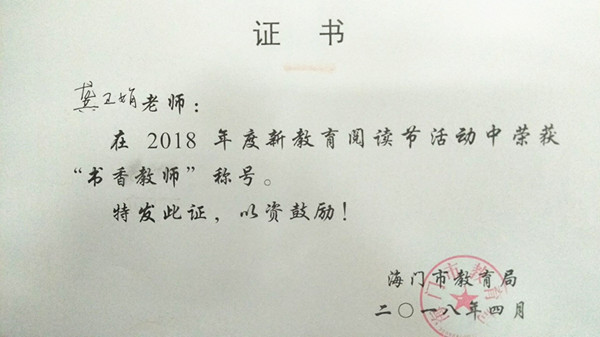 证 书
龚卫娟老师：
在 2018 年度新教育阅读节活动中荣获
“书香教师”称号。
特发此证，以资鼓励！
海门市教育局
二〇一八年四月